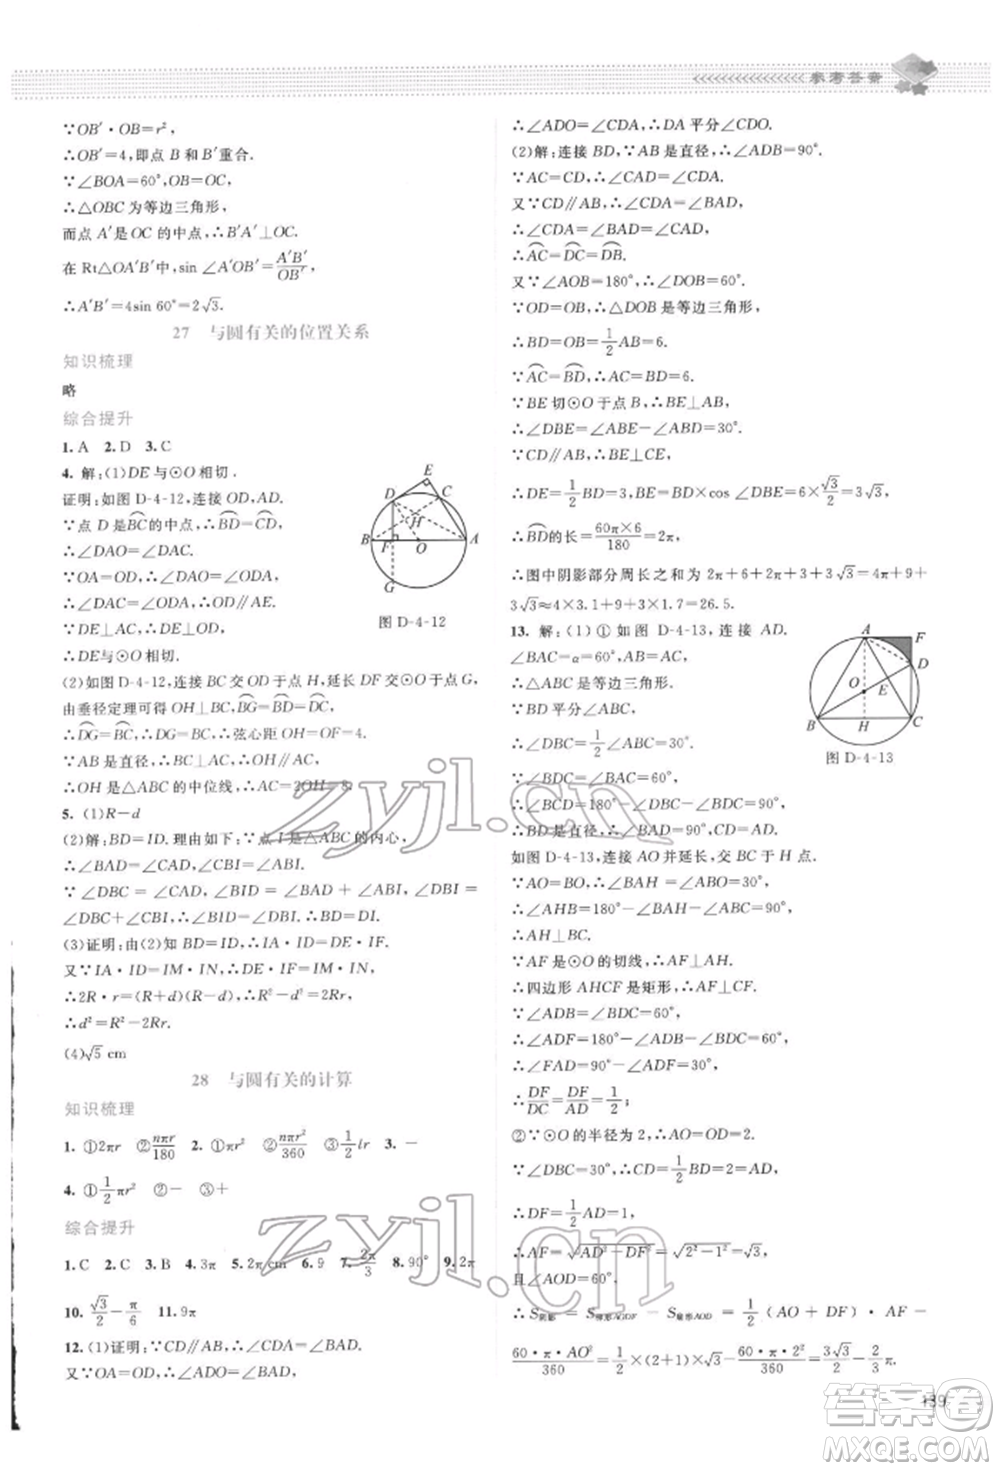 参考答案
∵OB′·OB=r²,
∴OB′=4,即点 B 和 B′重合.
∵∠BOA=60°,OB=OC,
∴△OBC 为等边三角形,
而点 A′是 OC 的中点,∴B′A′⊥OC.
在 Rt△OA′B′中,sin ∠A′OB′=A′B′/OB′,
∴A′B′=4sin 60°=2√3.
27 与圆有关的位置关系
知识梳理
略
综合提升
1. A 2. D 3. C
4. 解:(1)DE与⊙O 相切.
证明:如图 D-4-12,连接 OD,AD.
∵点 D 是BC的中点,∴BD=CD,
∴∠DAO=∠DAC.
∵OA=OD,
∴∠DAO=∠ODA,
∴∠DAC=∠ODA,
∴OD∥AE.
∵DE⊥AC,∴DE⊥OD,
∴DE 与⊙O 相切.
E
D
C
H
B
F
O
A
G
图 D-4-12
(2)如图 D-4-12,连接 BC 交 OD 于点 H,延长 DF 交⊙O 于点 G,
由垂径定理可得 OH⊥BC,BG=BD=DC,
∴DG=BC,∴DG=BC,∴弦心距 OH=OF=4.
∵AB 是直径,∴BC⊥AC,
∴OH 是△ABC 的中位线,∴AC=2OH=8.
5. (1)R−d
(2)解:BD=ID. 理由如下:∵点 I 是△ABC 的内心,
∴∠BAD=∠CAD,∠CBI=∠ABI.
∵∠DBC=∠CAD,∠BID=∠BAD+∠ABI,∠DBI=
∠DBC+∠CBI,∴∠BID=∠DBI,∴BD=DI.
(3)证明:由(2)知 BD=ID,∴IA·ID=DE·IF.
又∵IA·ID=IM·IN,∴DE·IF=IM·IN,
∴2R·r=(R+d)(R−d),∴R²−d²=2Rr,
∴d²=R²−2Rr.
(4)√5 cm
28 与圆有关的计算
知识梳理
1. ①2πr ②nπr/180 2. ①πr² ②nπr²/360 ③1/2 lr 3. −
4. ①1/2πr² ②− ③+
综合提升
1. C 2. C 3. B 4. 3π 5. 2π cm 6. 9 7. 2π/3 8. 90° 9. 2π
10. √3/2−π/6 11. 9π
12. (1)证明:∵CD∥AB,∴∠CDA=∠BAD.
又∵OA=OD,∴∠ADO=∠BAD,
∴∠ADO=∠CDA,∴DA 平分∠CDO.
(2)解:连接 BD,∵AB 是直径,∴∠ADB=90°.
∵AC=CD,∴∠CAD=∠CDA.
又∵CD∥AB,∴∠CDA=∠BAD,
∴∠CDA=∠BAD=∠CAD,
∴AC=DC=DB.
又∵∠AOB=180°,∴∠DOB=60°.
∵OD=OB,∴△DOB 是等边三角形,
∴BD=OB=1/2AB=6.
∵AC=BD,∴AC=BD=6.
∵BE 切⊙O 于点 B,∴BE⊥AB,
∴∠DBE=∠ABE−∠ABD=30°.
∵CD∥AB,∴BE⊥CE,
∴DE=1/2BD=3,BE=BD×cos ∠DBE=6×√3/2=3√3,
∴BD的长=60π×6/180=2π,
∴图中阴影部分周长之和为 2π+6+2π+3+3√3=4π+9+
3√3≈4×3.1+9+3×1.7=26.5.
13. 解:(1)①如图 D-4-13,连接 AD.
∠BAC=α=60°,AB=AC,
∴△ABC 是等边三角形.
∵BD 平分∠ABC,
∴∠DBC=1/2∠ABC=30°.
A
F
D
O
E
B
H
C
图 D-4-13
∵∠BDC=∠BAC=60°,
∴∠BCD=180°−∠DBC−∠BDC=90°,
∴BD是直径,∴∠BAD=90°.
如图 D-4-13,连接 AO并延长,交 BC于 H 点.
∵AO=BO,∴∠BAO=∠ABO=30°,
∴∠AHB=180°−∠BAO−∠ABC=90°,
∴AH⊥BC.
∵AF是⊙O 的切线,∴AF⊥AH.
∴四边形 AHCF是矩形,∴AF⊥CF.
∵∠ADB=∠BDC=60°,
∴∠ADF=180°−∠ADB−∠BDC=60°,
∴DF/DC=DF/AD=1/2;
②∵⊙O 的半径为 2,∴AO=OD=2.
∵∠DBC=30°,∴CD=1/2BD=2,∴AD=CD=2,
∴DF=1/2AD=1,
∴AF=√AD²−DF²=√2²−1²=√3,
且∠AOD=60°,
∴S阴影=S梯形AODF−S扇形AOD=1/2(AO+DF)·AF−
60·π·AO²/360=1/2×(2+1)×√3−60·π·2²/360=3√3/2−2/3π.
139
zyjl.cn
zyjl.cn
答案圈
MXQE.COM